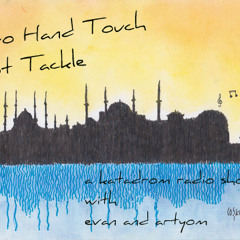 o Hand Touch
t Tackle
a katadrom radio sho
with
evan and artyom